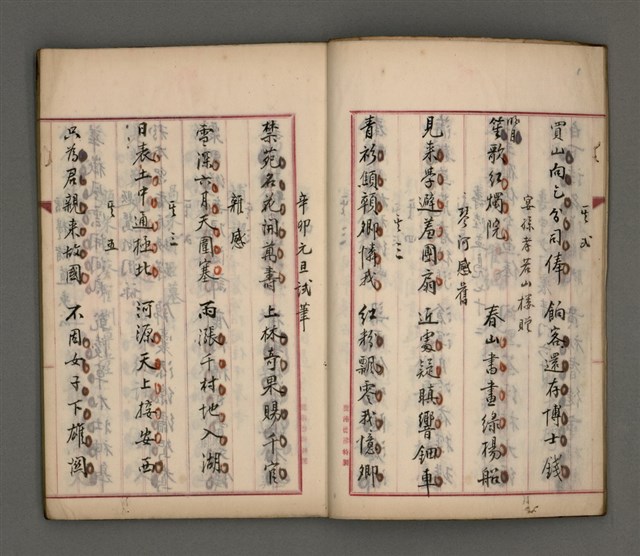 其貳
買山向乞分司俸 餉客還存博士錢
宴孫孝若山樓贈
明月笙歌紅燭院 春山書畫綠楊船
見来學避羞團扇 近處疑瞋響鈿車
琴河感舊
其三
青衫顦顇卿憐我 紅粉飄零我憶卿
辛卯元旦試筆
禁苑名花開萬壽 上林奇果賜千官
雜感
雪深六月天圍塞 雨漲千村地入湖
其三
日表土中通極北 河源天上接安西
其五
只為君親来故國 不因女子下雄關